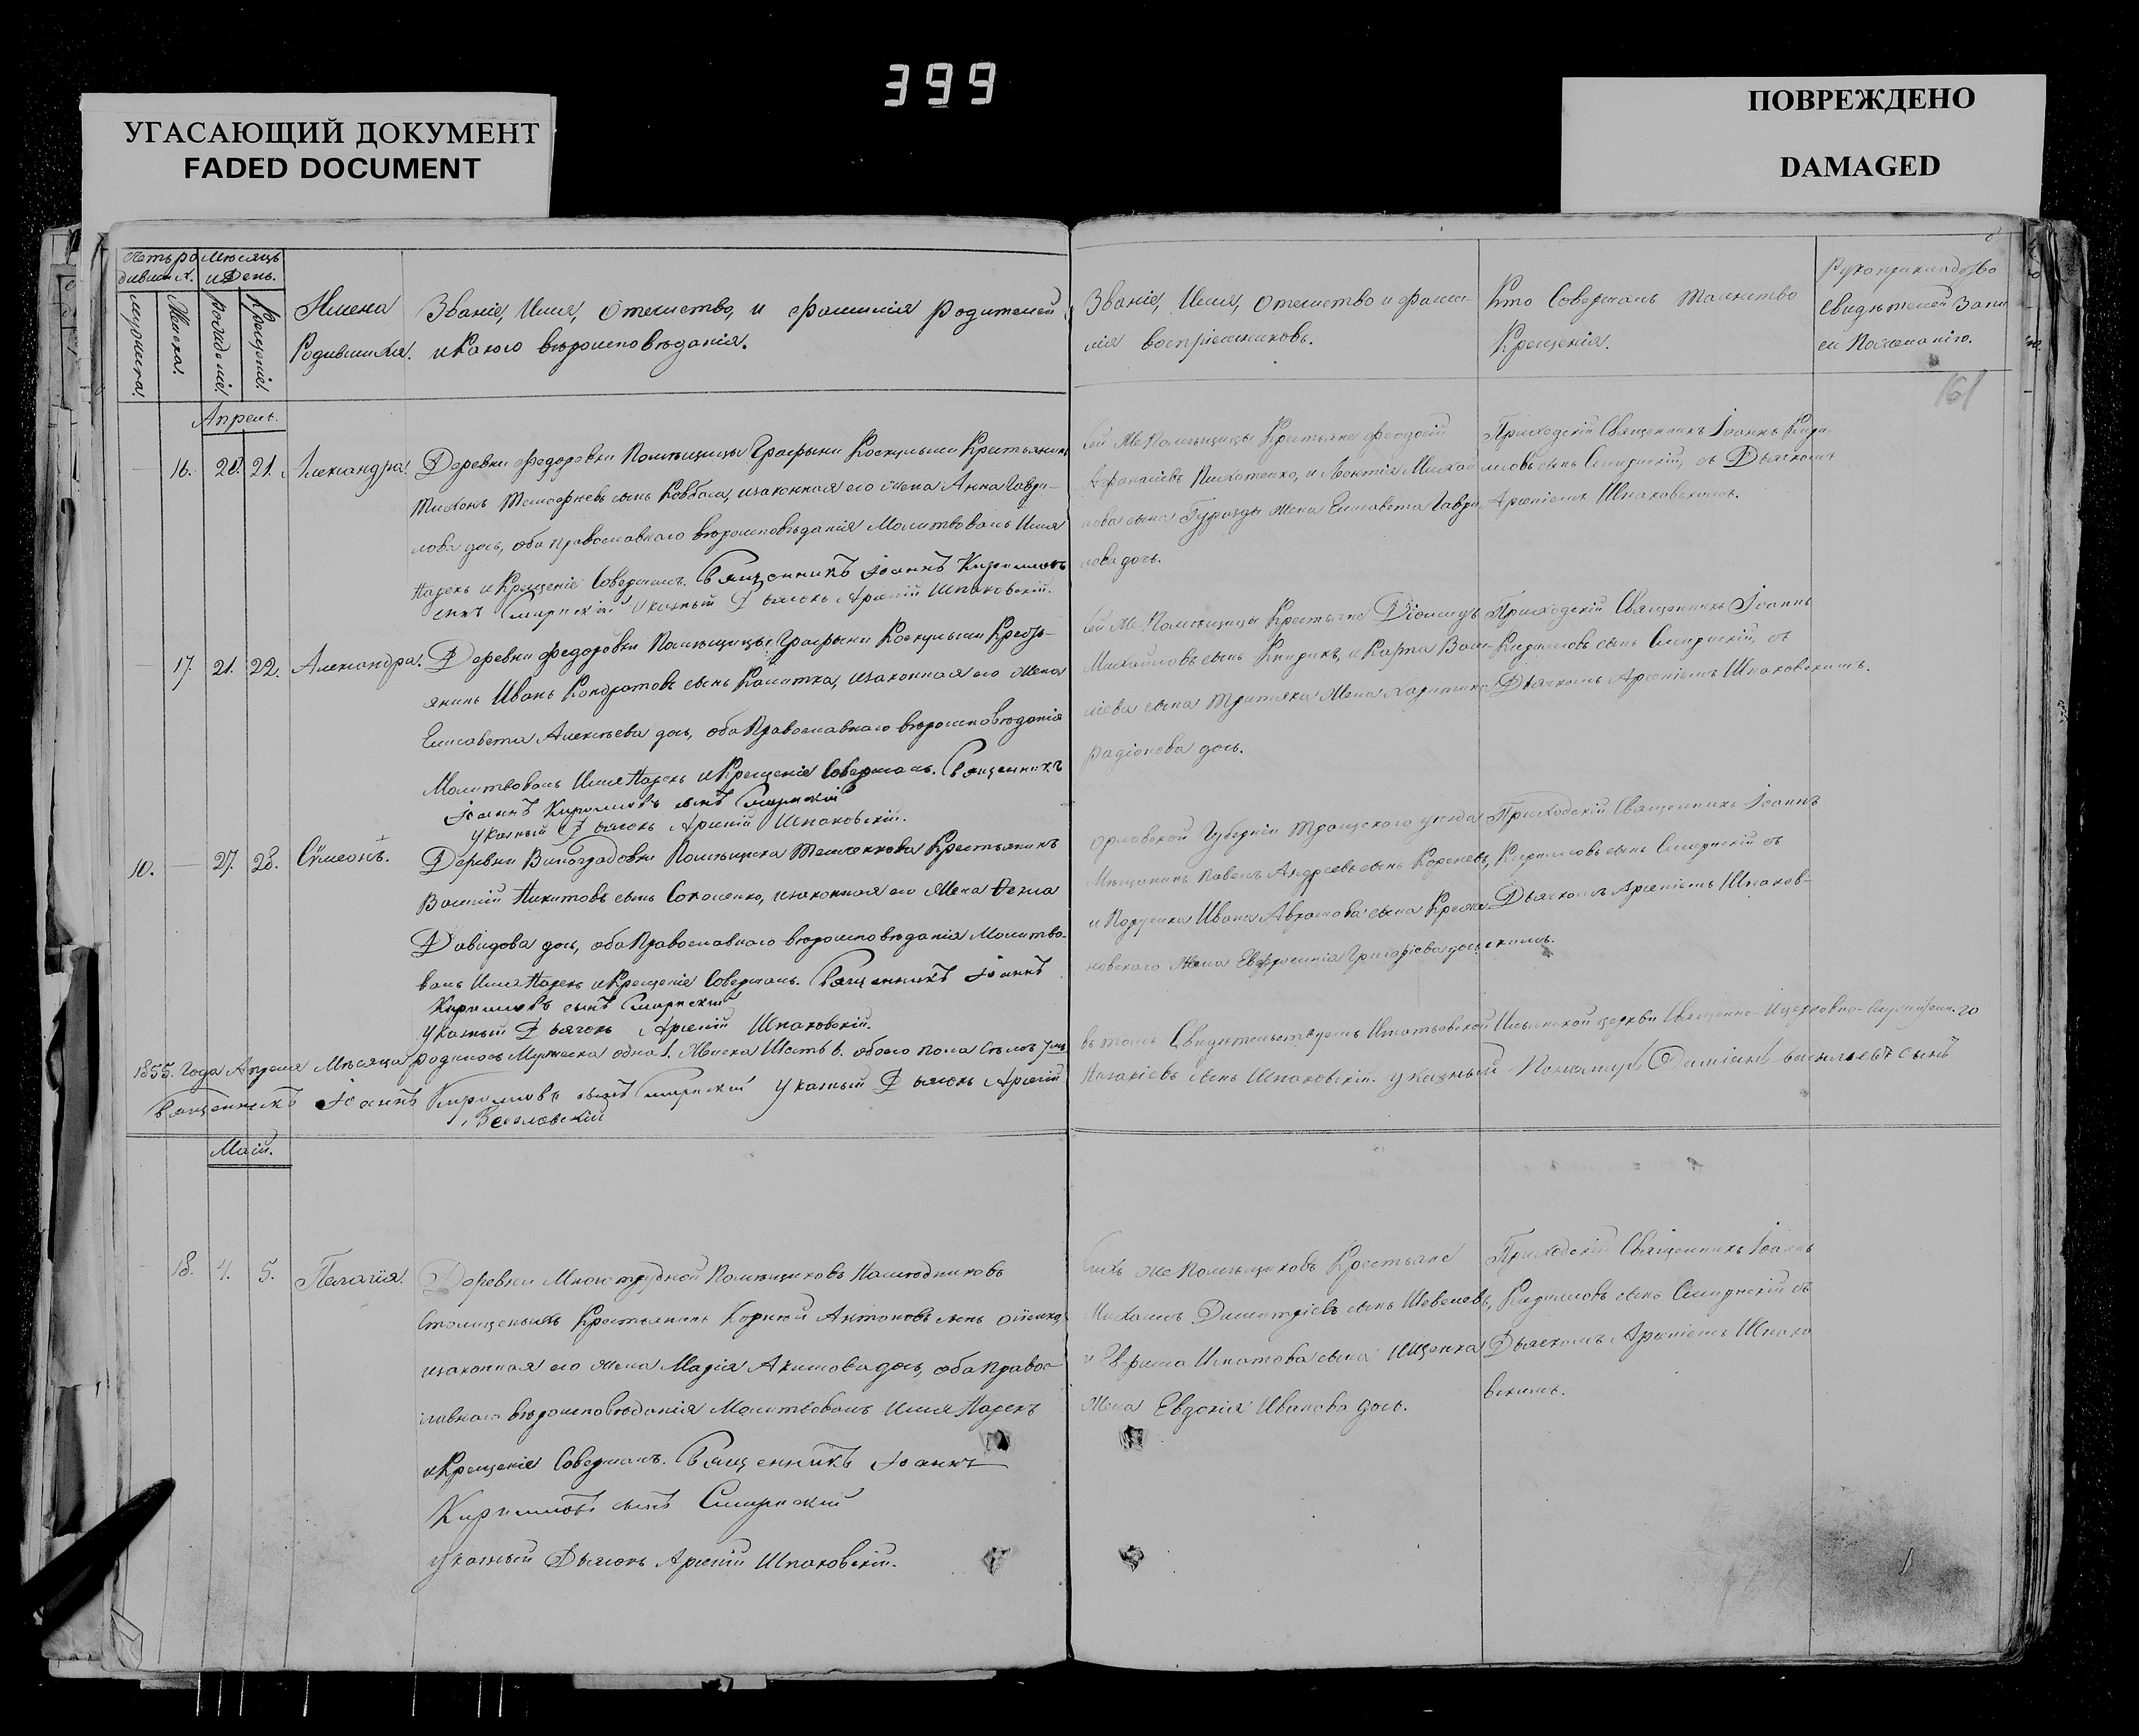 399
УГАСАЮЩИЙ ДОКУМЕНТ
FADED DOCUMENT
ПОВРЕЖДЕНО
DAMAGED
Мѣсяцъ
и День.
Женска.
Крещенiе.
Имена
Родившихся.
Званiе, Имя, Отечество, и фамилiя родителей
и Какого вѣроисповѣданiя.
Званiе, Имя, Отечество и фами-
лiя воспрiемниковъ.
Кто Совершалъ Таинство
Крещенiя.
Рукоприкладство
Свидѣтелей Запи
си По Желанiю.
161
Апрель.
16. 20. 21. Александра.
Деревни Федоровки Помѣщицы Графыни Крестьянинъ
Тихонъ Тимофѣевъ сынъ Ковбаса, изаконная его жена Анна Гаври-
лова дочь, оба православнаго вѣроисповѣданiя Молитвовалъ Имя
Нарекъ и Крещенiе Совершалъ. Священникъ Iоаннъ Кириловъ
сынъ Смирнскiй Указный Дьячокъ Арсенiй Шпаковскiй.
сей же Помѣщицы Крестьяне Феодосiй
Афанасiевъ Пихотенко, и Леонтiя Михай
лова сына Гуразды жена Елисавета Гаври
лова дочь.
Приходскiй Священникъ Iоаннъ Кири-
ловъ сынъ Смирнскiй, съ Дьячкомъ
Арсенiемъ Шпаковскимъ.
17. 21. 22. Александра.
Деревни Федоровки Помѣщицы Графыни Кресть-
янинъ Иванъ Кондратовъ сынъ Калитка, изаконная его Жена
Елисавета Алексѣева дочь, оба Православнаго вѣроисповѣданiя
Молитвовалъ Имя Нарекъ и Крещенiе Совершалъ. Священникъ
Iоаннъ Кириловъ сынъ Смирнскiй
Указный Дьячокъ Арсенiй Шпаковскiй.
сей же Помѣщицы Крестьяне Дiомидъ
Михайловъ сынъ Кнырикъ, и Карпа Васи-
лiева сына Тритяка Жена Харитина
Радiонова дочь.
Приходскiй Священникъ Iоаннъ
Кириловъ сынъ Смирнскiй, съ
Дьячкомъ Арсенiемъ Шпаковскимъ.
10. 27. 28. Сѵмеонъ.
Деревни Виноградовки Помѣщика Крестьянинъ
Василiй Никитовъ сынъ Соколенко, изаконная его Жена Фекла
Давидова дочь, оба Православнаго вѣроисповѣданiя Молитво-
валъ Имя Нарекъ и Крещенiе Совершалъ. Священникъ Iоаннъ
Кириловъ сынъ Смирнскiй
Указный Дьячокъ Арсенiй Шпаковскiй.
Орловской Губернiи уѣзда
Мѣщанинъ Павелъ Андреевъ сынъ Кореневъ,
и Поручика Ивана Аврамова сына
новскаго Жена Евфросинiя Григорiева дочь
Приходскiй Священникъ Iоаннъ
Кириловъ сынъ Смирнскiй съ
Дьячкомъ Арсенiемъ Шпаков-
скимъ.
1855. Года Апреля Мѣсяца родилось Мужеска одна 1. Женска Шесть 6. обоего пола Семь
Священникъ Iоаннъ Кириловъ сынъ Смирнскiй Указный Дьячокъ Арсенiй
въ томъ Свидѣтельствуемъ Ильинской церкви Священно-
Назарiевъ сынъ Шпаковскiй. Указный Пономарь Дамiанъ васильевъ сынъ
Веселовскiй
Маiй.
18. 4. 5. Пелагiя.
Деревни Многотрудной Помѣщиковъ Наслѣдниковъ
Крестьянинъ Корнiй Антоновъ сынъ
изаконная его жена Марiя Акимова дочь, оба Правос-
лавнаго вѣроисповѣданiя Молитвовалъ Имя Нарекъ
и Крещенiе Совершалъ. Священникъ Iоаннъ
Кириловъ сынъ Смирнскiй
Указный Дьячокъ Арсенiй Шпаковскiй.
сихъ же Помѣщиковъ Крестьяне
Михаилъ Димитрiевъ сынъ Шевелевъ,
и Ефима Игнатова сына Ищенка
жена Евдокiя Иванова дочь.
Приходскiй Священникъ Iоаннъ
Кириловъ сынъ Смирнскiй съ
Дьячкомъ Арсенiемъ Шпако
вскимъ.